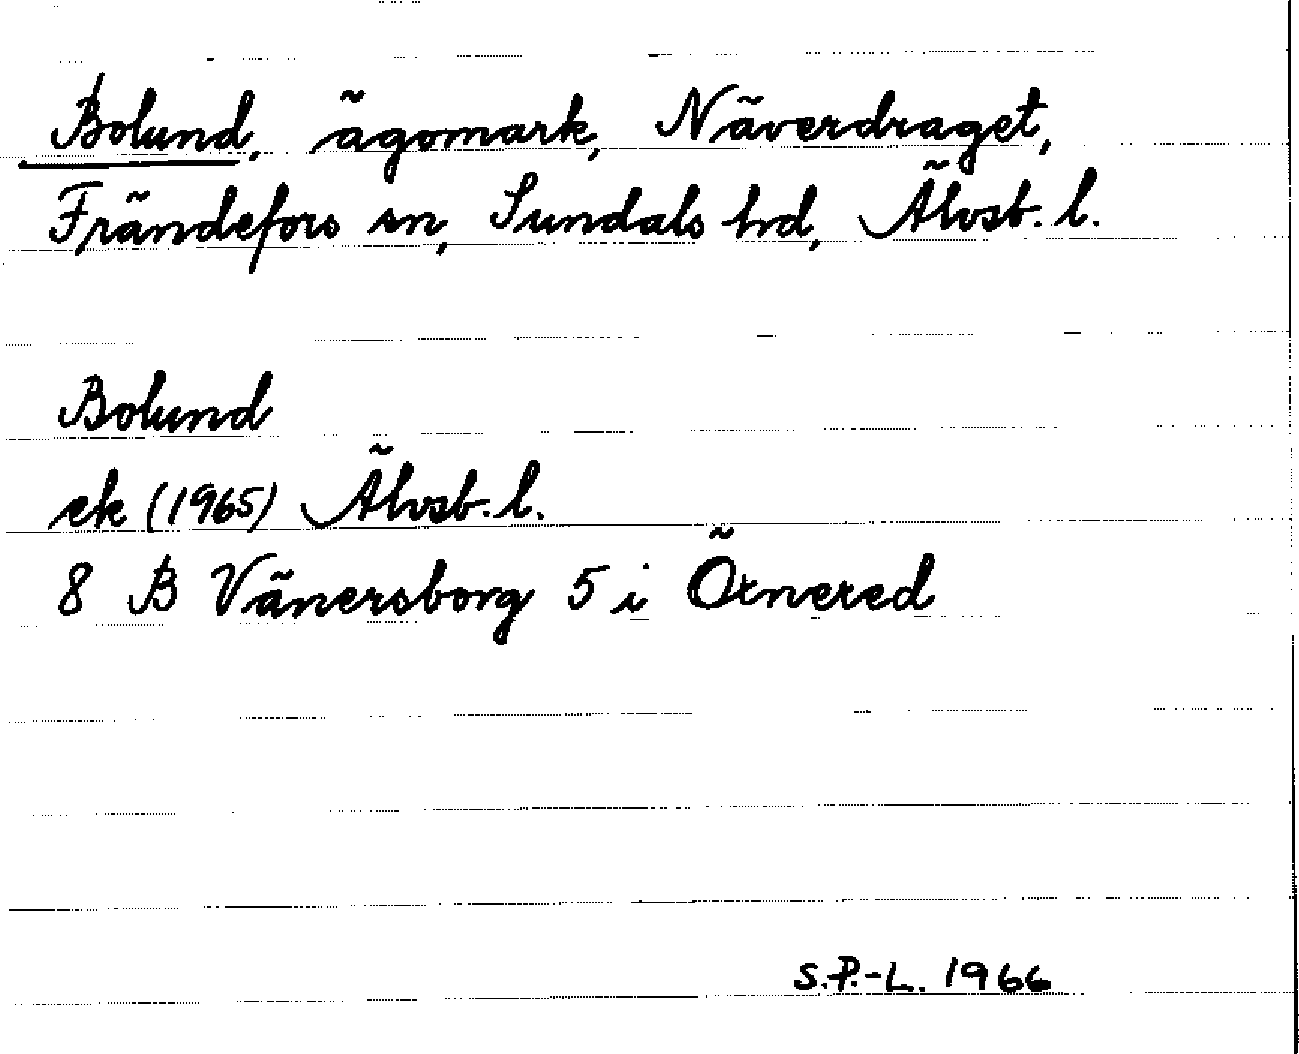 Bolund, ägomark, Näverdraget,
Frändefors sn, Sundals hd, Älvsb. l.
Bolund
ek (1965) Älvsb. l.
8 B Vänersborg 5 i Öxnered
S.P.-L. 1966